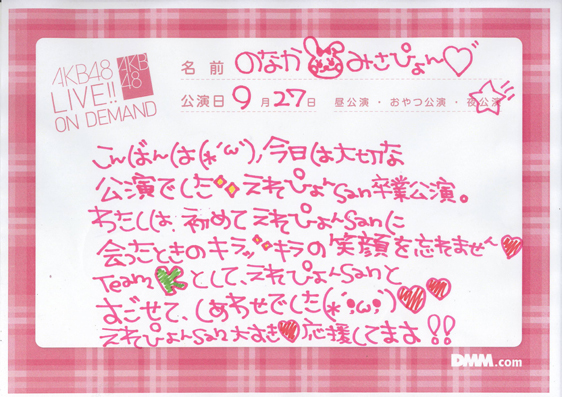 AKB48
LIVE!!
ON DEMAND
AKB
48
名前 のなか みさぴょん♡
公演日 9月27日 昼公演・おやつ公演・夜公演
こんばんは(*'ω')ノ今日は大切な
公演でした えれぴょんsan卒業公演。
わたしは、初めてえれぴょんsanに
会ったときのキラッキラの笑顔を忘れません♥
Team Kとして、えれぴょんsanと
すごせて、しあわせでした(*´ω`)♥♥
えれぴょんsan大すき♥応援してます!!
DMM.com